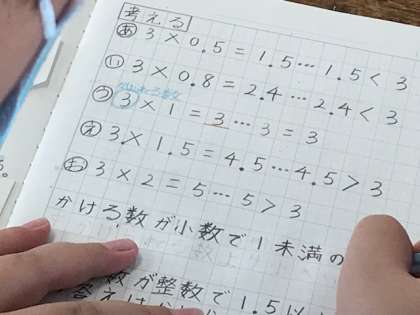 考える
あ 3×0.5=1.5…1.5<3
い 3×0.8=2.4…2.4<3
う 3×1=3…3=3
え 3×1.5=4.5…4.5>3
お 3×2=5…5>3
かける数が小数で1未満の
数が整数で1.5以
答えは